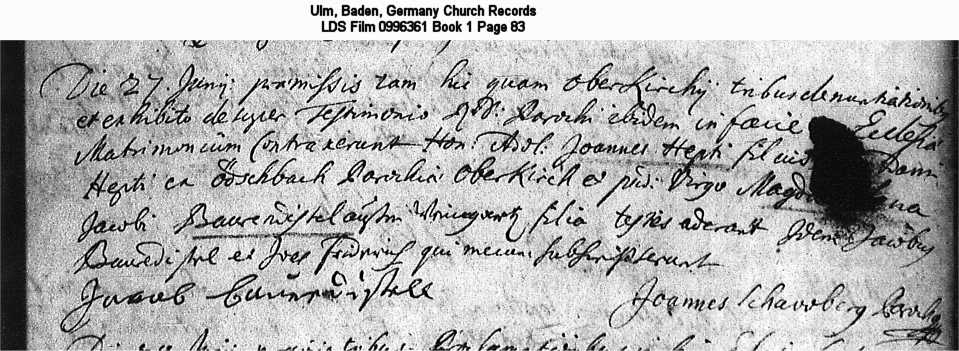 Ulm, Baden, Germany Church Records
LDS Film 0996361 Book 1 Page 83
Die 27 Junij præmissis tam hic quam Oberkirchij tribus denuntiationibus
et exhibito desuper Testimonio Parochi ibidem in facie Ecclesiæ
Matrimonium Contraxerunt Hon: Adol: Joannes Hepti filius
Hepti ex Ödschbach Parochiæ Oberkirch et pud: Virgo Magdalena
Jacobi Baurendistel filia testes aderant Idem Jacobus
Bauredistel et Joes Fridrich qui mecum subscripserunt
Jacob bauredistell
Joannes Schavvberg Parochus